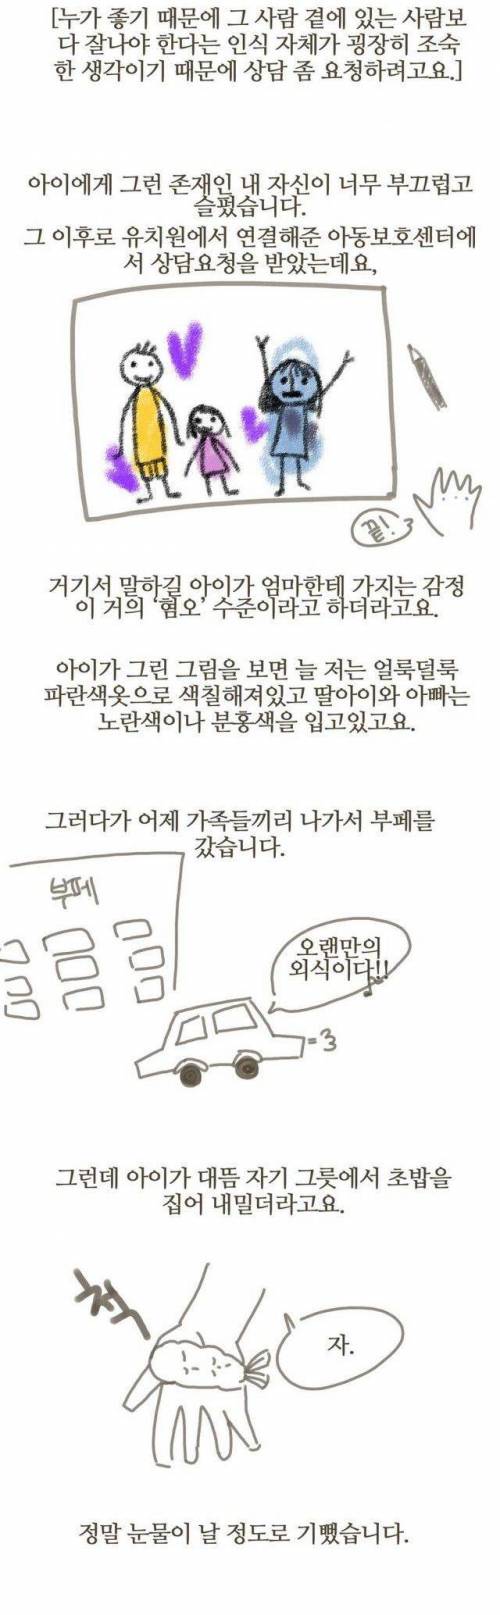 [누가 좋기 때문에 그 사람 곁에 있는 사람보
다 잘나야 한다는 인식 자체가 굉장히 조숙
한 생각이기 때문에 상담 좀 요청하려고요.]
아이에게 그런 존재인 내 자신이 너무 부끄럽고
슬펐습니다.
그 이후로 유치원에서 연결해준 아동보호센터에
서 상담요청을 받았는데요,
끝!
거기서 말하길 아이가 엄마한테 가지는 감정
이 거의 '혐오' 수준이라고 하더라고요.
아이가 그린 그림을 보면 늘 저는 얼룩덜룩
파란색옷으로 색칠해져있고 딸아이와 아빠는
노란색이나 분홍색을 입고있고요.
그러다가 어제 가족들끼리 나가서 부페를
갔습니다.
부페
오랜만의
외식이다!!
그런데 아이가 대뜸 자기 그릇에서 초밥을
집어 내밀더라고요.
척
자.
정말 눈물이 날 정도로 기뻤습니다.